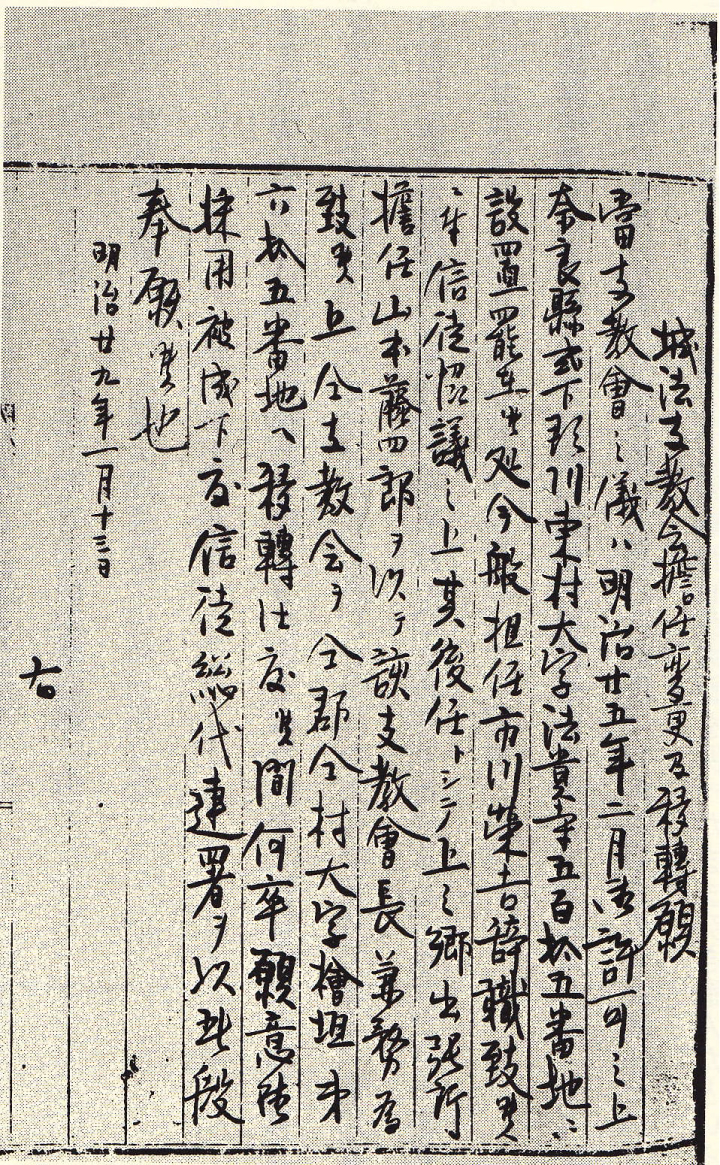 城法支教会擔任変更及移轉願
當支教會之儀ハ明治廿五年二月御許可之上
奈良縣式下郡川東村大字法貴寺五百拾五番地ニ
設置罷在候処今般担任市川榮吉辞職致候
ニ付信徒協議之上其後任トシテ上之郷出張所
擔任山本藤四郎ヲ以テ該支教會長兼務為
致候上仝支教会ヲ仝郡仝村大字檜垣
六拾五番地ヘ移轉仕度候間何卒願意御
採用被成下度信徒総代連署ヲ以此段
奉願候也
明治廿九年一月十三日
右